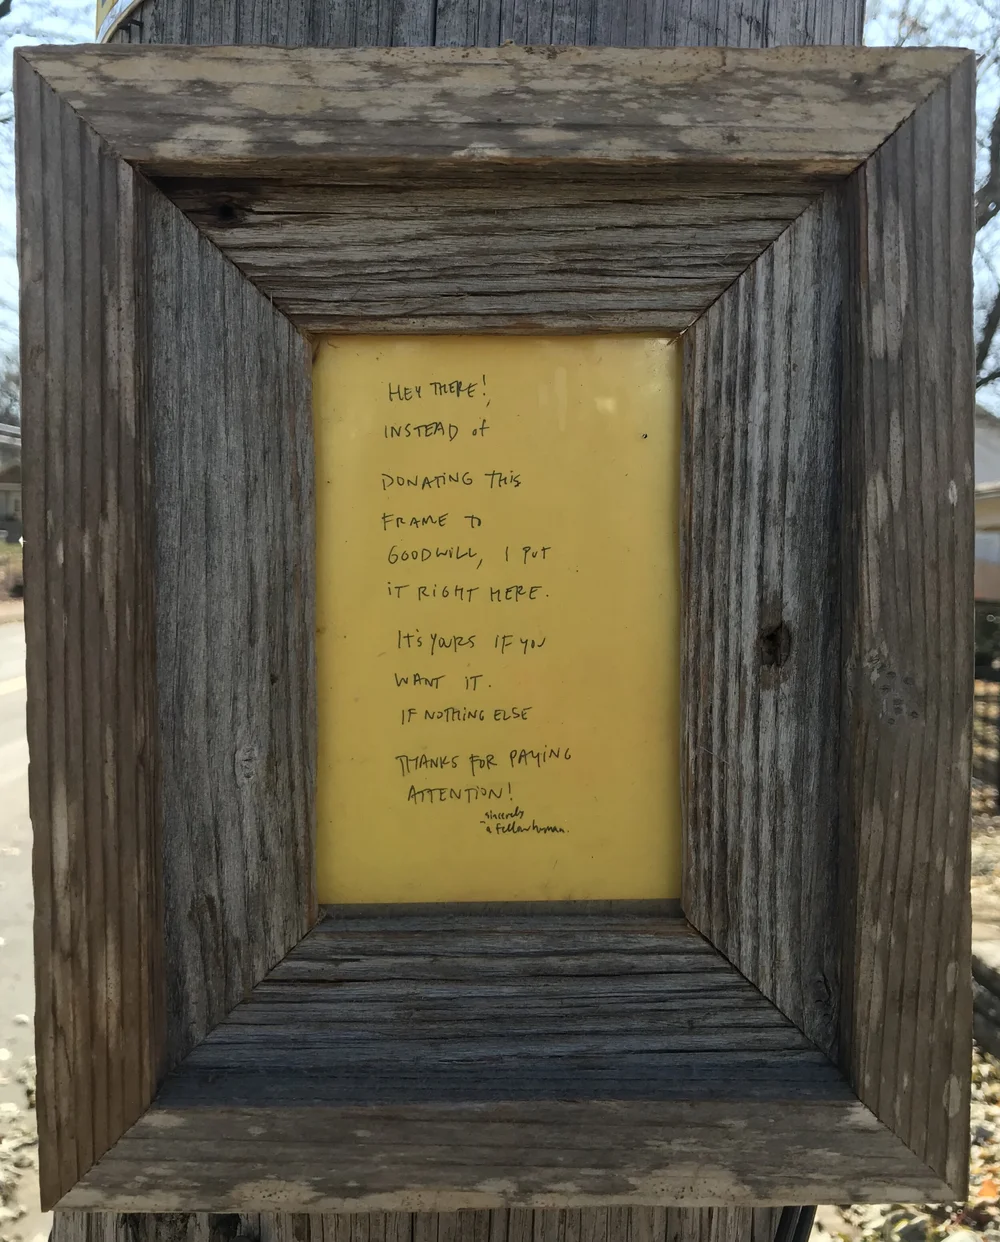 HEY THERE!
INSTEAD of
DONATING THIS
FRAME TO
GOODWILL, I PUT
IT RIGHT HERE.
IT'S YOURS IF YOU
WANT IT.
IF NOTHING ELSE
THANKS FOR PAYING
ATTENTION!
sincerely
a fellow human.